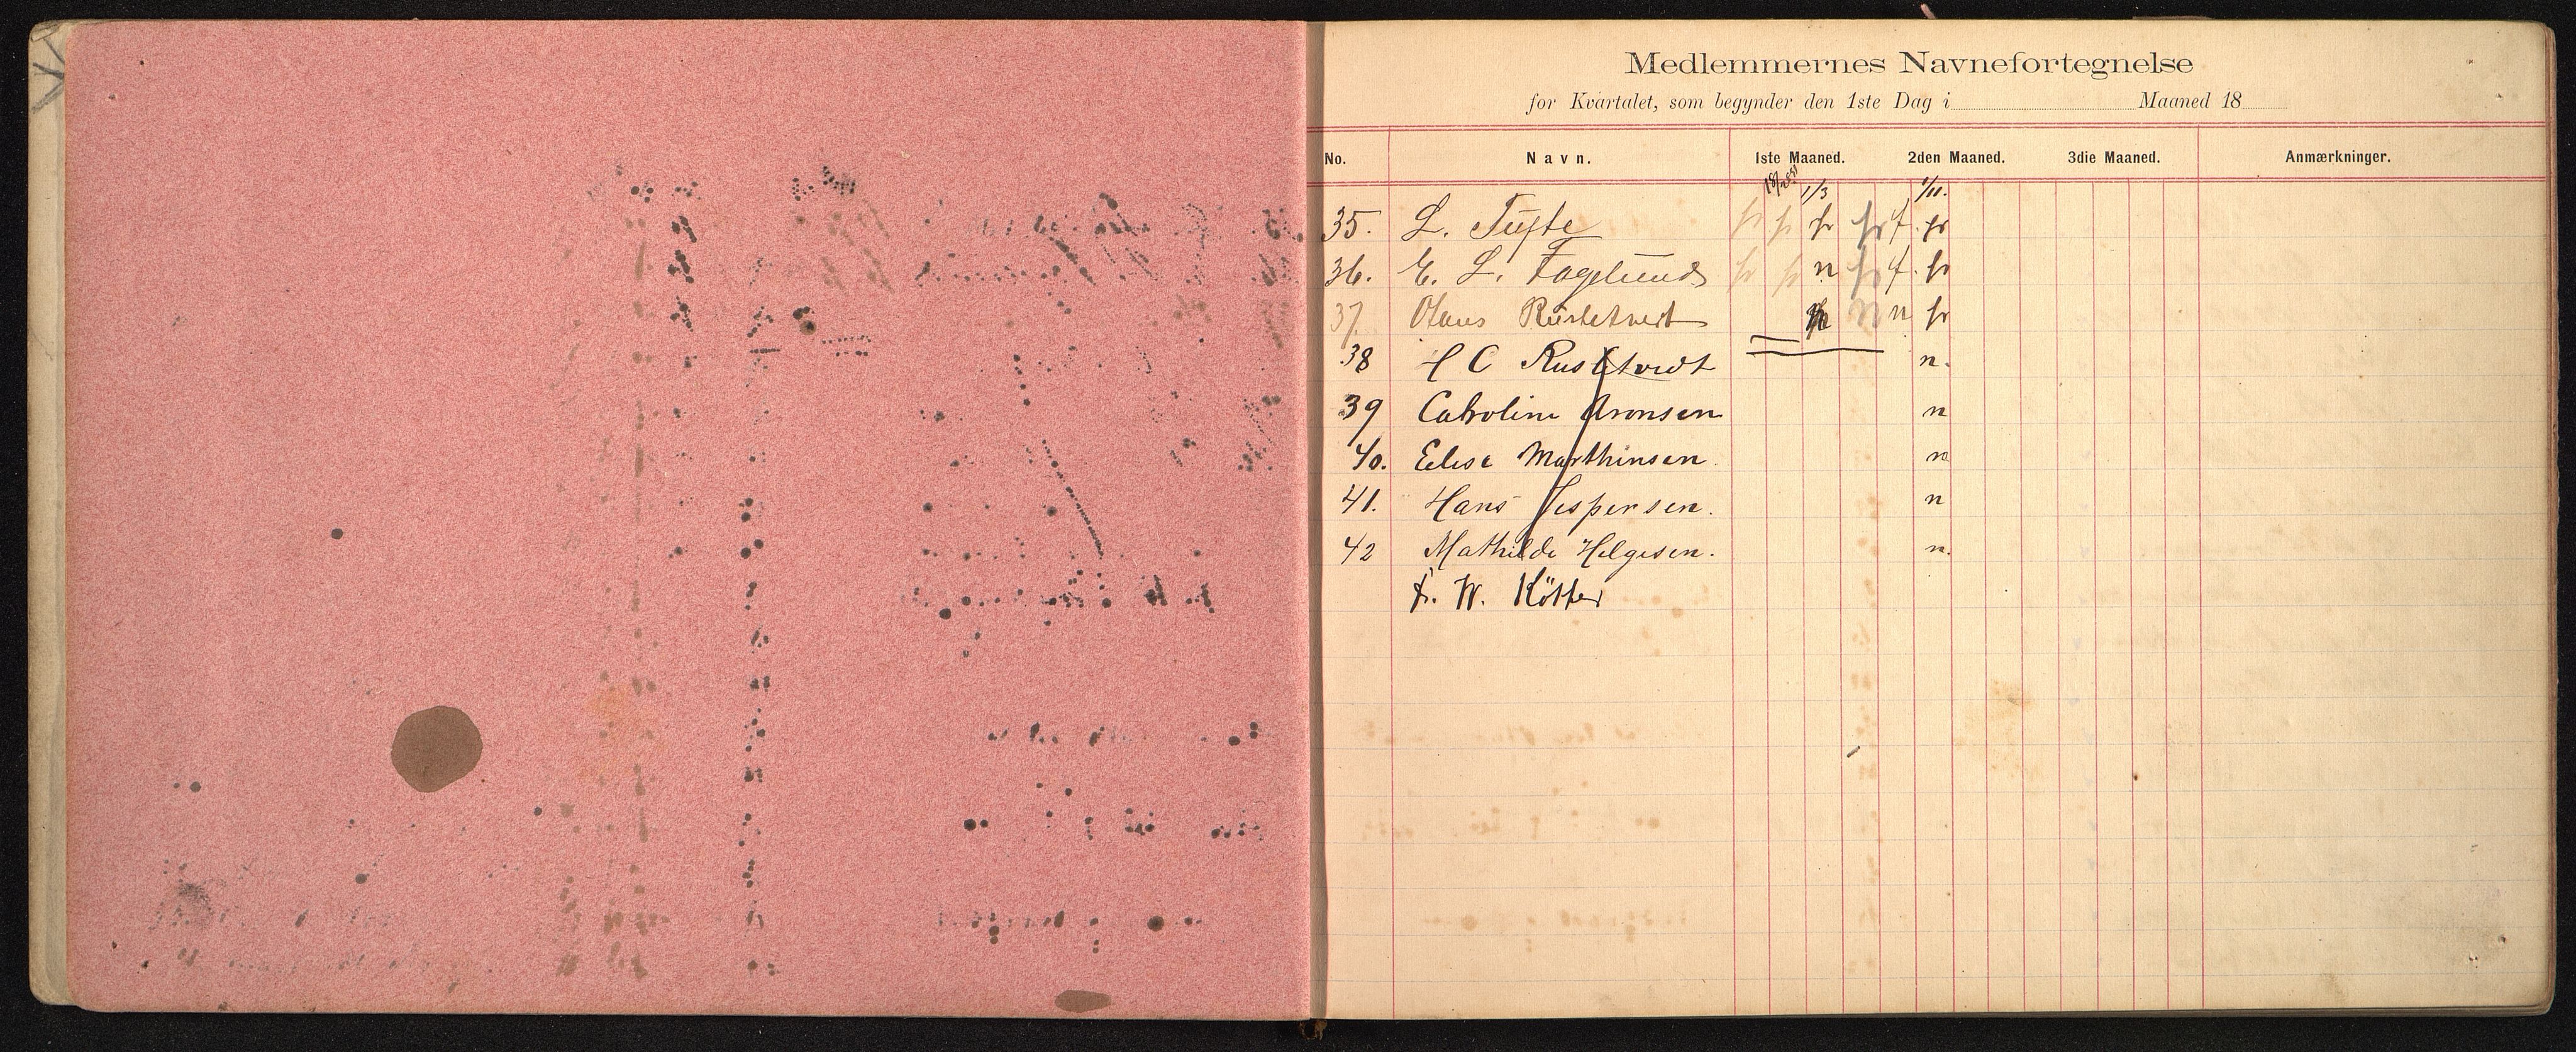 Medlemmernes Navnefortegnelse
for Kvartalet, som begynder den 1ste Dag i Maaned 18
No. Navn. 1ste Maaned. 2den Maaned. 3die Maaned. Anmærkninger.
1/3 1/11.
35. L. Tufte fr fr fr fr f. fr
36. E. L. Fagelund fr fr n fr f. fr
37. Hans n n fr
38 H C n.
39 Caroline Aronsen n
40. Elise Marthinsen. n
41. Hans Jespersen. n
42 Mathilde Helgesen. n.
F. W. Kötter